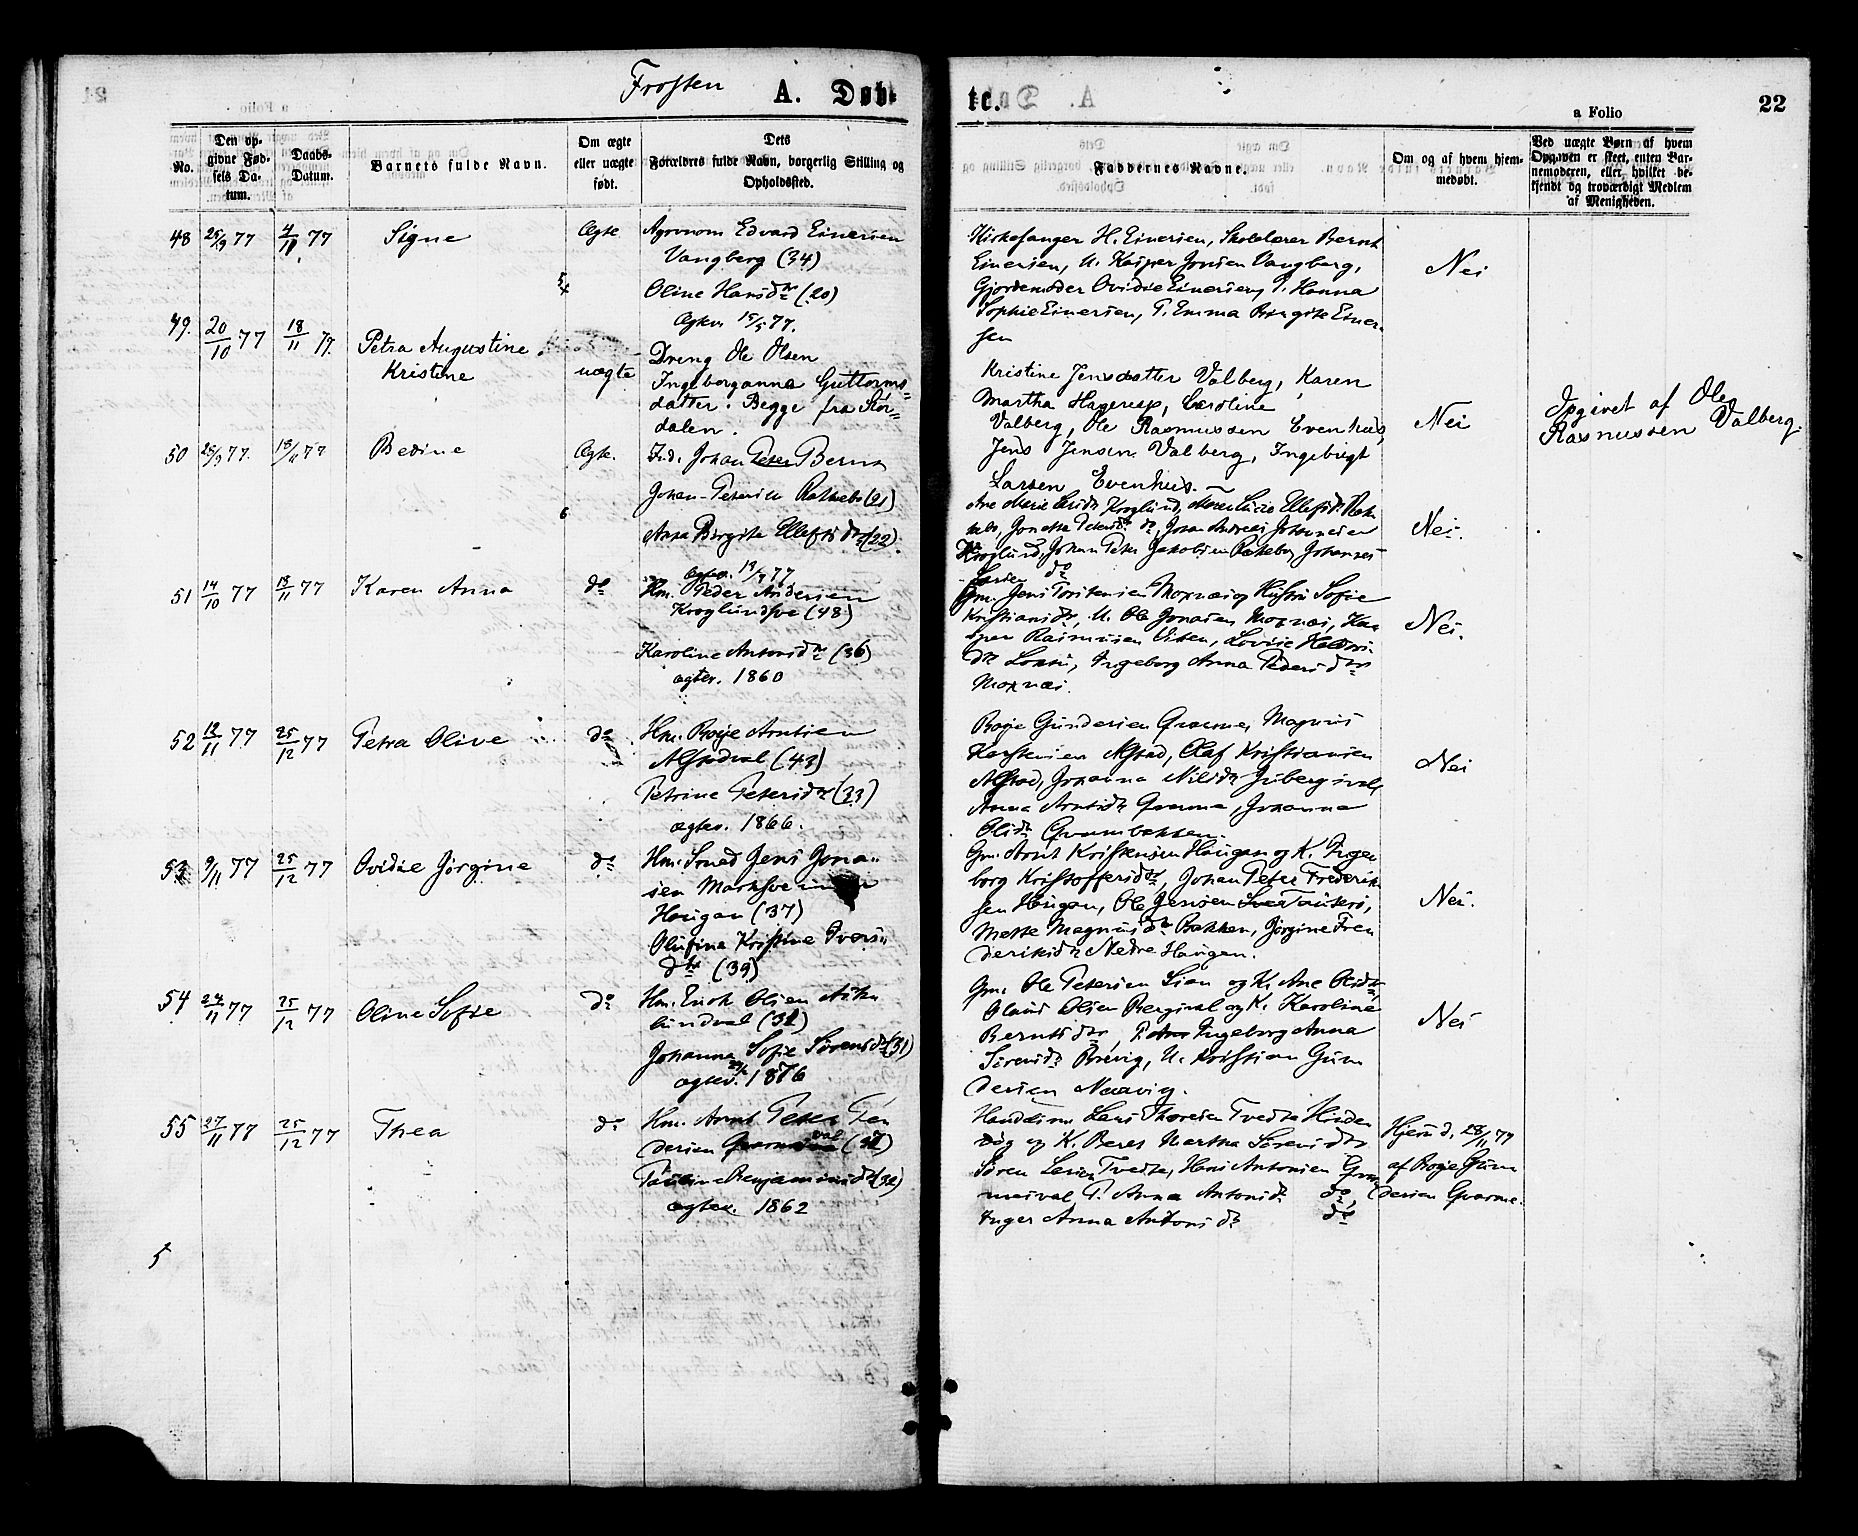 Frosten A. Døbte. 22
a Folio
No.
Den opgivne Fødsels Datum.
Daabs-Datum.
Barnets fulde Navn.
Om ægte eller uægte født.
Dets Forældres fulde Navn, borgerlig Stilling og Opholdssted.
Faddernes Navne.
Om og af hvem hjemmedøbt.
Ved uægte Børn af hvem Opgaven er skeet, enten Barnemoderen, eller hvilket bekjendt og troværdigt Medlem af Menigheden.
48 25/9 77 77 Signe Ægte
Agronom Edvard Einersen
Vangberg (34)
Oline Hansdtr (20)
Ægtev. 15/5 77.
Kirkesanger H. Einersen, Skolelærer Bernt
Einersen, U. Kasper Jonsen Vangberg,
Gjordemoder Ovidie Einersen, P. Hanna
Sophie Einersen, P. Emma Birgite Einer-
sen
Nei
49. 20/10 77 18/11 77. Petra Augustine
Kristine
uægte
Dreng Ole Olsen
Ingeborganna Guttorms-
datter. Begge fra Stør-
dalen.
Kristine Jensdatter Valberg, Karen
Martha Hagerup, Caroline
Valberg, Ole Rasmussen Evenhus,
Jens Jensen Valberg, Ingebrigt
Larsen Evenhus.
Nei
Opgivet af Ole
Rasmussen Valberg.
50 77. 77 Bedine Ægte.
Ind. Johan Peter Bernt
(21)
Anna Birgite Ellefsdtr (22).
77
Johan Andreas Johannesen
Kroglund, Johan Peter Jakobsen Johannes
Larsen do
Nei.
51 14/10 77 18/11 77 Karen Anna do
Hm. Peder Andersen
Kroglundsve (48)
Karoline Antonsdtr (36)
ægtev. 1860
Gm. Jens Torstensen Moxnes og Hustru Sofie
Kristiansdtr, U. Ole Jonasen Moxnes, Kas
per Rasmusen Viken, Lovise
dtr Ingeborg Anna Pedersdtr
Moxnes.
Nei.
52 12/11 77 25/12 77 Petra Olive do
Hm. Boye Arntsen
Alstadval (43)
Petrine Petersdtr (33)
ægtev. 1866.
Boye Gundersen Qvarme, Magnus
Karstensen Alstad, Olaf Kristiansen
Alstad, Johanna Nilsdtr
Anna Arntsdtr Qvarme, Johanna
Olsdtr Qvambakken.
Nei
53 9/11 77 25/12 77 Ovidie Jørgine do
Hm. Smed Jens Jona-
sen
Haugan (37)
Olufina Kristine Ivers-
dtr (39)
Gm. Arnt Kristensen Haugan og K. Inge
borg Kristoffersdtr, Johan Peter Frederik
sen Haugan, Ole Jensen
Mette Magnusdtr Bakken, Jørgine Fre
deriksdtr Nedre Haugan.
Nei.
54 24/11 77 25/12 77 Oline Sofie do
Hm. Erick Olsen
lundval
Johanna Sofie Sørensdtr (31)
ægtev. 1876
Gm. Ole Petersen Lian og K. Ane Olsdtr,
Olaus Olsen Bergsval og K. Karoline
Berntsdtr, P. Ingeborg Anna
Sørensdtr Brevig, U. Kristian Gun
dersen Nervig.
Nei
55 27/11 77 25/12 77 Thea do
Hm. Arnt Peter Pe
dersen
Pauline Benjaminsdtr
ægtev. 1862
Handelsm. Lars Thoresen Tvedte Hinden
og K. Beret Martha Sørensdtr
Søren Larsen Tvedte, Hans Antonsen
P. Anna Antonsdtr do,
Inger Anna Antonsdtr do
Hjemd. 28/11 77
af Boye Gun
dersen Qvarme.
5